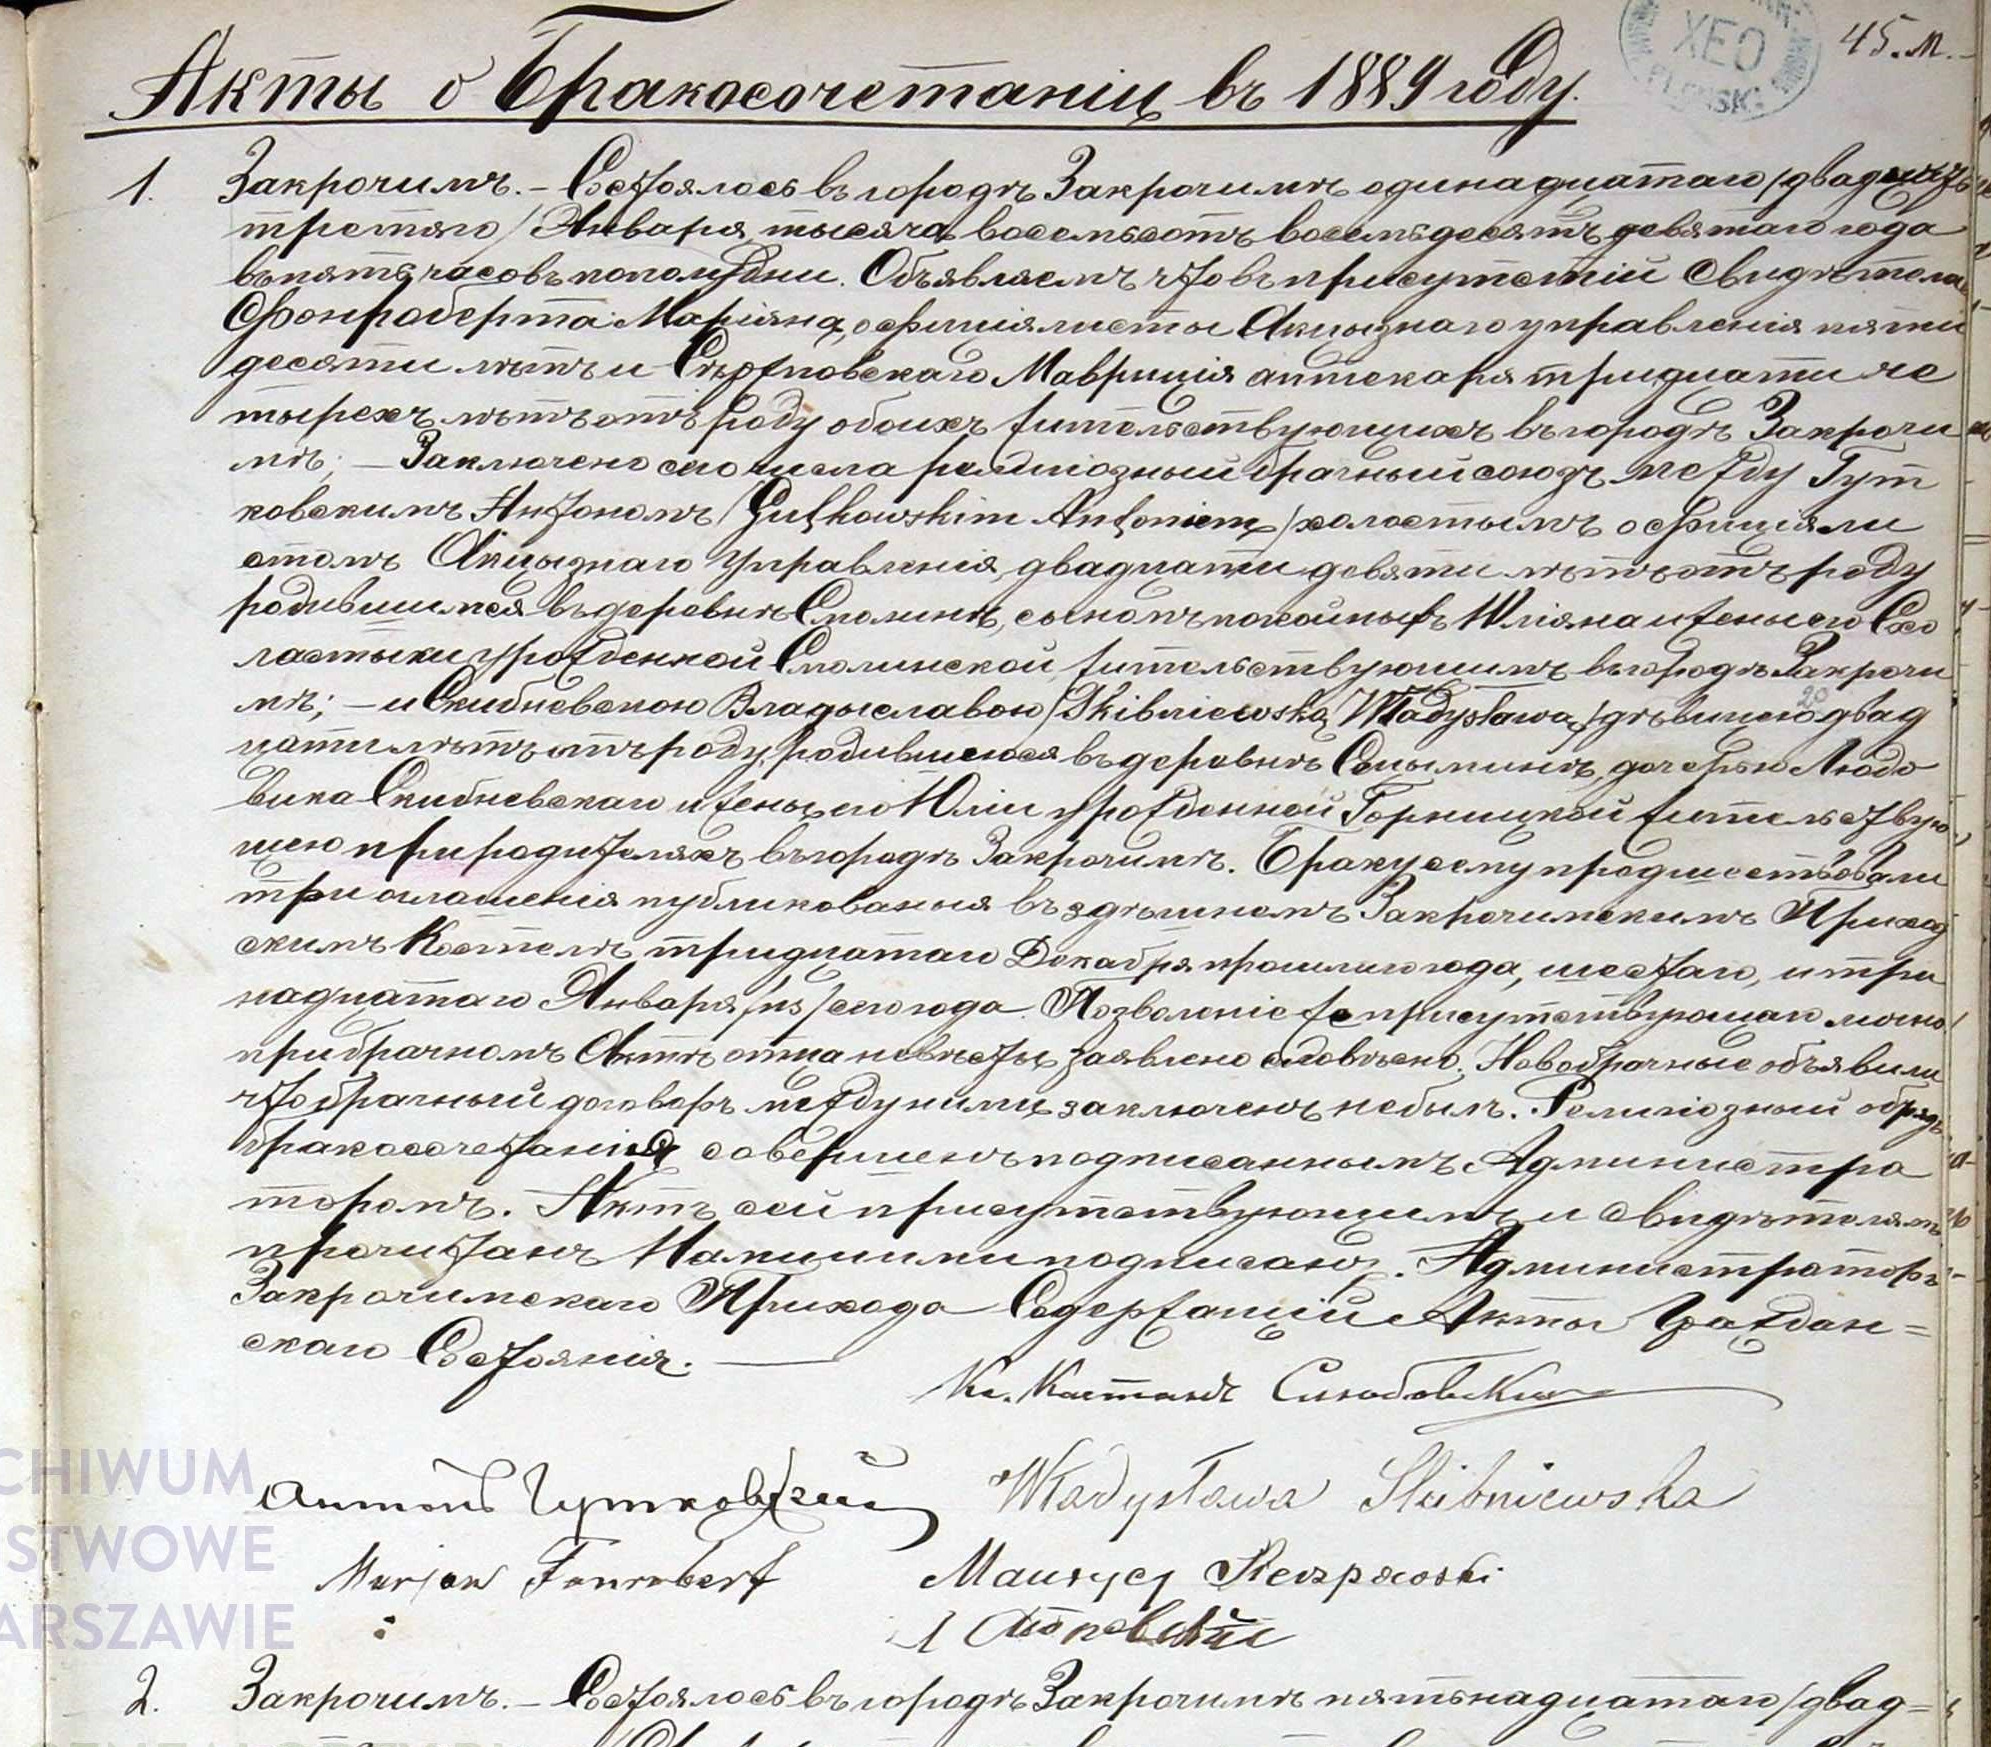 45. м.
Акты о Бракосочетаніи въ 1889 году.
1. Закрочимъ. – Состоялось въ городѣ Закрочимѣ одинадцатаго /двадцать
третяго/ Января тысяча восемьсотъ восемьдесятъ девятаго года
въ пять часовъ пополудни. Объявляемъ что въ присутствіи свидѣтелей
Фонроберта Маріяна, офиціялисты Акцызнаго управленія пяти
десяти лѣтъ и Мавриція аптекаря тридцати че
тырехъ лѣтъ отъ роду обоихъ жительствующихъ въ городѣ Закрочи
мѣ; – Заключено сего числа религіозный брачный союзъ между Гут
ковскимъ Антономъ /Gutkowskim Antoniem/ холостымъ офиціяли
стомъ Акцызнаго Управленія, двадцати девяти лѣтъ отъ роду
родившимся въ деревнѣ Смолинѣ, сыномъ покойныхъ Юліяна и жены его Схо
ластыки урожденной Смолинской, жительствующимъ въ городѣ Закрочи
мѣ; – и Скибневскою Владыславою /Skibniewską Władysławą/ дѣвицею двад
цати лѣтъ отъ роду, родившеюся въ деревнѣ Сецыминѣ, дочерью Людо
вика Скибневскаго и жены его Юліи урожденной Горницкой жительствую
щею при родителяхъ въ городѣ Закрочимѣ. Браку сему предшествовали
три оглашенія публикованыя въ здѣшнемъ Закрочимскимъ Приход
скимъ Костелѣ, тридцатаго Декабря прошлого года, шестаго, и три
надцатаго Января /нs/ сего года. Позволеніе присутствующаго лично
при брачномъ Актѣ отца невѣсты, заявлено словѣсно. Новобрачные объявили
что брачный договоръ между ними заключенъ небылъ. Религіозный обрядъ
бракосочетанія совершенъ подписаннымъ Администра
торомъ. Актъ сей присутствующимъ и свидѣтелямъ
прочитанъ Нами и ими подписанъ. Администраторъ
Закрочимскаго Прихода Содержащій Акты Граждан=
скаго Состоянія. ———
Кс.
Антонъ Гутковскій Władysława Skibniewska
Marjan Fonrobert Maurycy
2. Закрочимъ. – Состоялось въ городѣ Закрочимѣ пятьнадцатаго /двад=